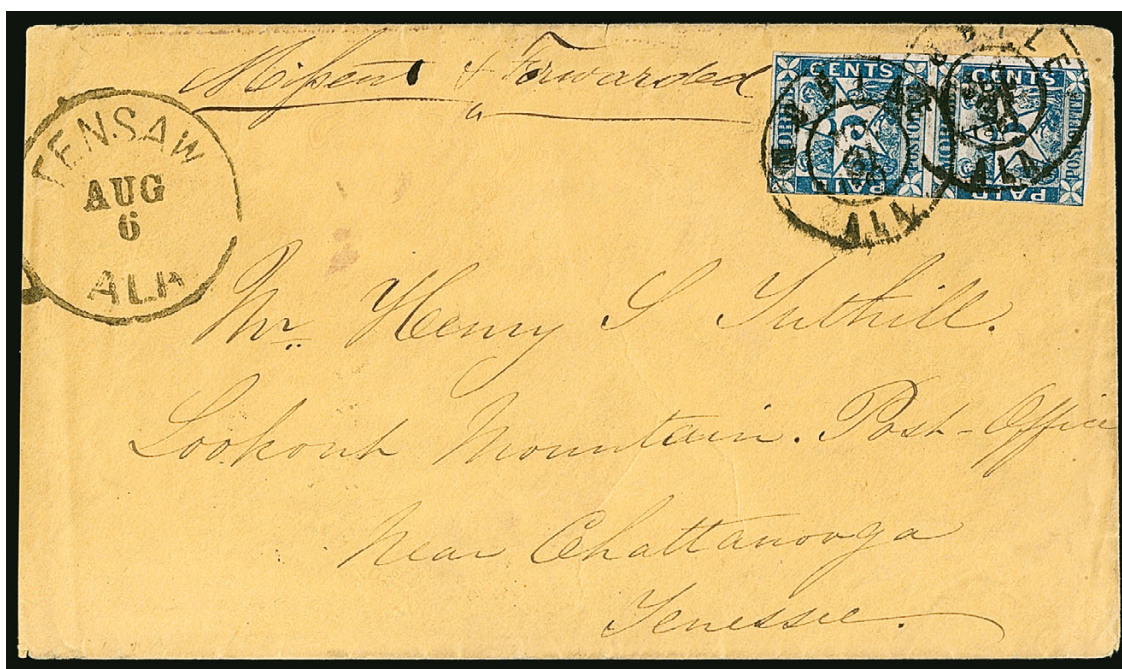 Missent & Forwarded
TENSAW
AUG
6
ALA
CENTS CENTS
5 5
POST OFFICE POST OFFICE
PAID PAID
ALA
ALA
Mr. Henry S Tuthill.
Lookout Mountain. Post-Office
Near Chattanooga
Tenessee.